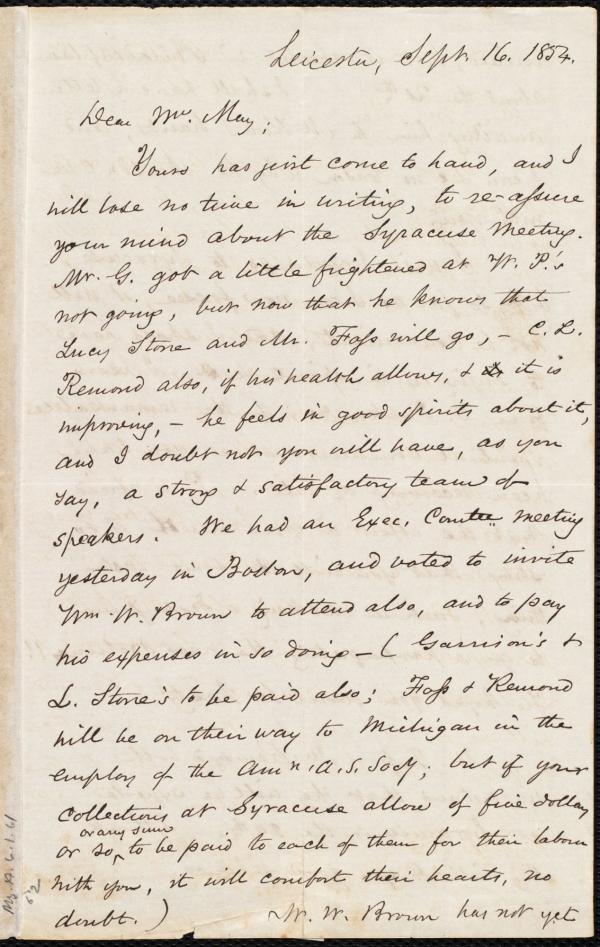 Leicester, Sept. 16. 1854.
Dear Mr. May;
Yours has just come to hand, and I
will lose no time in writing, to re-assure
your mind about the Syracuse Meeting.
Mr. G. got a little frightened at W. P.'s
not going, but now that he knows that
Lucy Stone and Mr. Foss will go, - C. L.
Remond also, if his health allows, & it is
improving, - he feels in good spirits about it,
and I doubt not you will have, as you
say, a strong & satisfactory team of
speakers. We had an Exec. Comtee. meeting
yesterday in Boston, and voted to invite
Wm. W. Brown to attend also, and to pay
his expenses in so doing - ( Garrison's &
L. Stone's to be paid also; Foss & Remond
will be on their way to Michigan in the
employ of the Amn. A. S. Socy; but if your
collections at Syracuse allow of five dollars
or any sum
or so, to be paid to each of them for their labour
with you, it will comfort their hearts, no
doubt. ) W. W. Brown has not yet